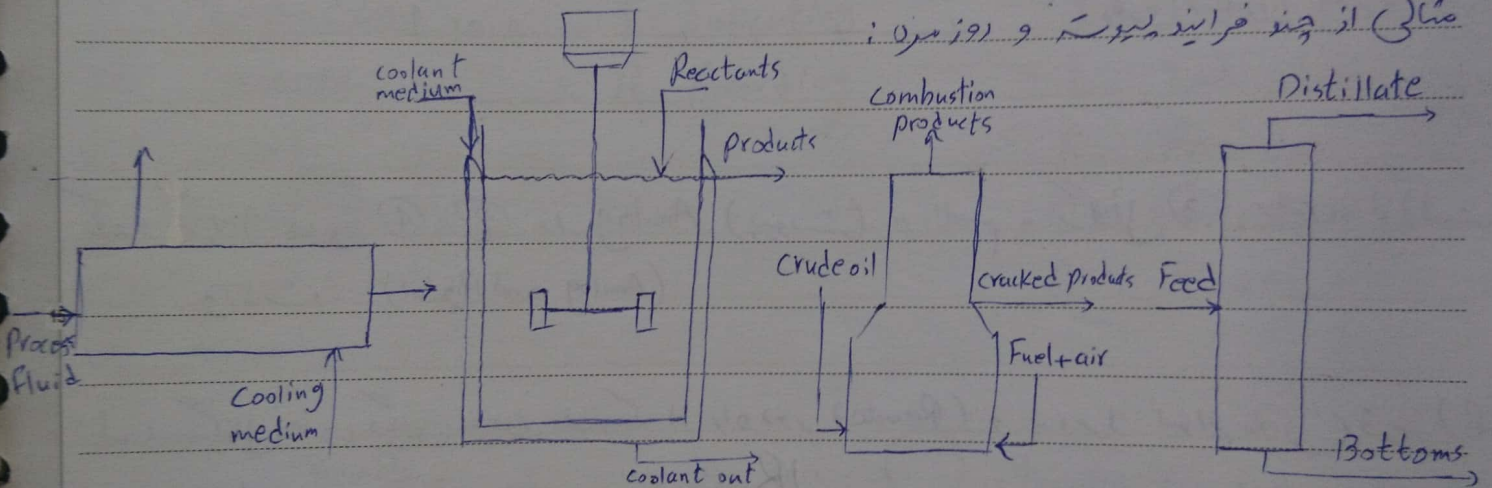 مثالی از چند فرایند پیوسته و روزمره :
coolant
medium
Reactants
Products
Combustion
products
Distillate
Crude oil
Cracked products
Feed
Process
fluid
Cooling
medium
Fuel+air
Coolant out
Bottoms